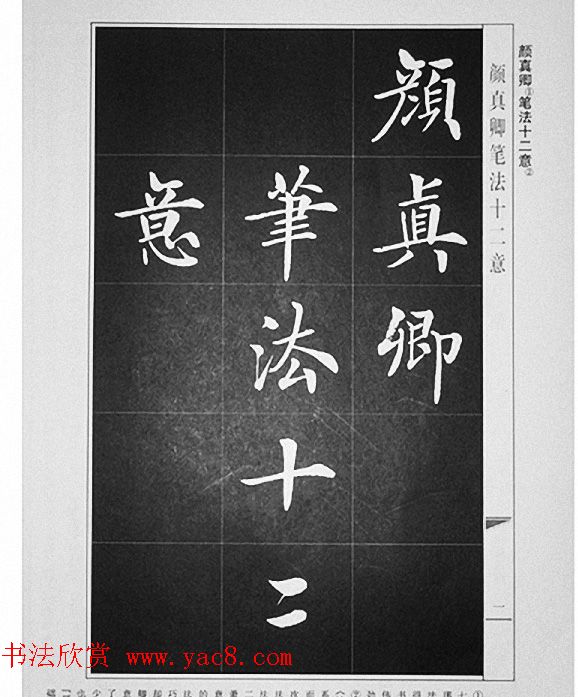 颜真卿①笔法十二意②
颜真卿笔法十二意
顔真卿
筆法十二
意
二
书法欣赏 www.yac8.com